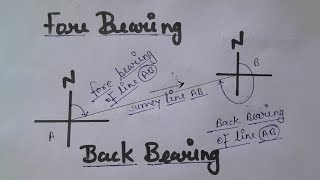 Fore Bearing
N
N
B
fore bearing
of line AB
survey line AB
A
Back Bearing
of line AB
Back Bearing